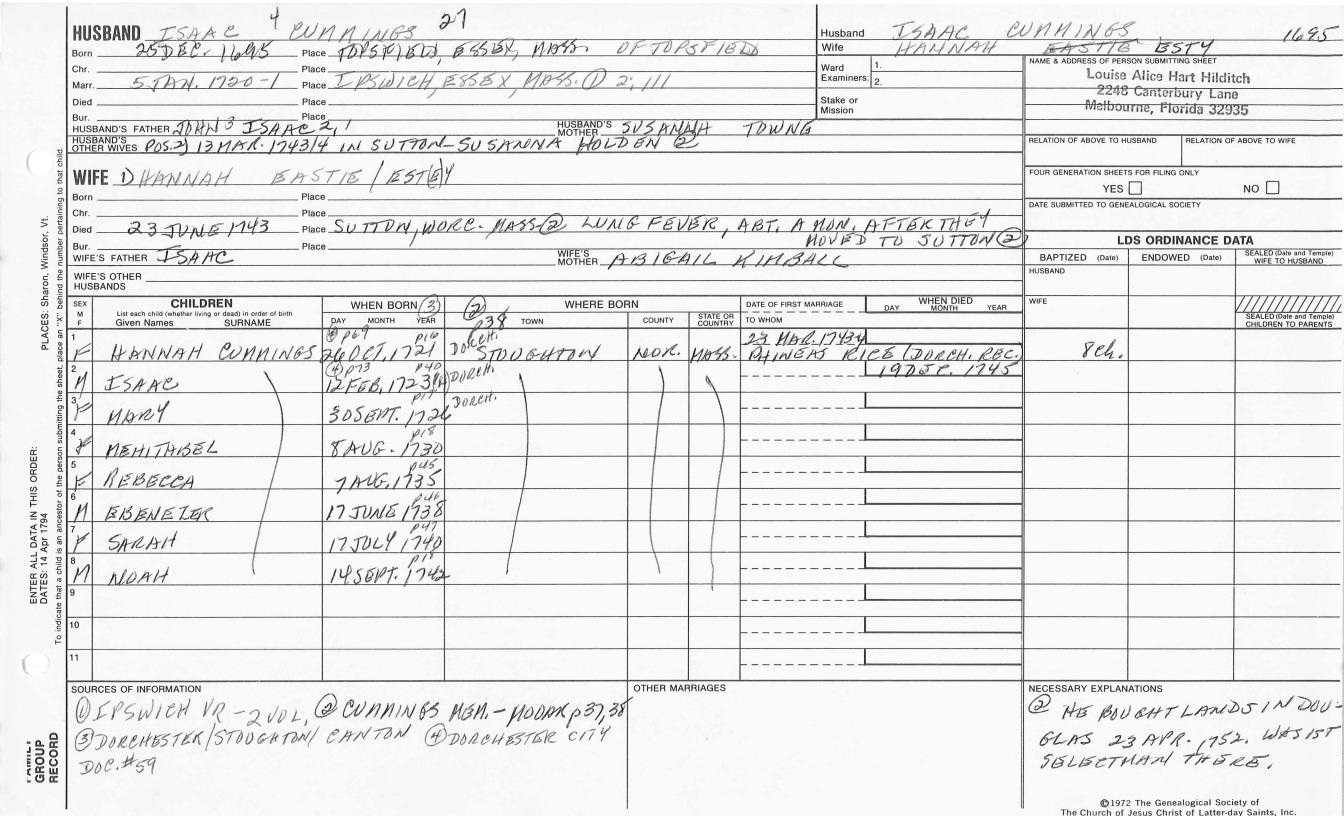 HUSBAND ISAAC 4 CUMMINGS 27
Born 25 DEC. 1695 Place TOPSFIELD, ESSEX, MASS. OF TOPSFIELD
Chr. Place
Marr. 5 JAN. 1720-1 Place IPSWICH, ESSEX, MASS. ① 2:111
Died Place
Bur. Place
HUSBAND'S FATHER JOHN 3 ISAAC 2, 1 HUSBAND'S MOTHER SUSANNAH TOWNE
HUSBAND'S OTHER WIVES POS. 2) 13 MAR. 1743/4 IN SUTTON-SUSANNA HOLDEN ②
WIFE 1) HANNAH EASTIE / EST(E)Y
Born Place
Chr. Place
Died 23 JUNE 1743 Place SUTTON, WORC. MASS ② LUNG FEVER, ABT. A MON. AFTER THEY
Bur. Place MOVED TO SUTTON ②
WIFE'S FATHER ISAAC WIFE'S MOTHER ABIGAIL KIMBALL
WIFE'S OTHER HUSBANDS
Husband ISAAC CUMMINGS 1695
Wife HANNAH EASTIE ESTY
Ward Examiners: 1.
2.
Stake or Mission
NAME & ADDRESS OF PERSON SUBMITTING SHEET
Louise Alice Hart Hilditch
2248 Canterbury Lane
Melbourne, Florida 32935
RELATION OF ABOVE TO HUSBAND RELATION OF ABOVE TO WIFE
FOUR GENERATION SHEETS FOR FILING ONLY
YES NO
DATE SUBMITTED TO GENEALOGICAL SOCIETY
LDS ORDINANCE DATA
BAPTIZED (Date) ENDOWED (Date) SEALED (Date and Temple) WIFE TO HUSBAND
HUSBAND
WIFE
SEALED (Date and Temple) CHILDREN TO PARENTS
8 ch.
SEX M F
CHILDREN
List each child (whether living or dead) in order of birth
Given Names SURNAME
WHEN BORN ③
DAY MONTH YEAR
② p38 WHERE BORN
TOWN COUNTY STATE OR COUNTRY
DATE OF FIRST MARRIAGE
TO WHOM
WHEN DIED
DAY MONTH YEAR
④ p69 p16 DORCH. 23 MAR. 1743/4
1 F HANNAH CUMMINGS 26 OCT. 1721 STOUGHTON NOR. MASS. PHINEAS RICE (DORCH. REC.
④ p73 p40 19 DEC. 1745
2 M ISAAC 12 FEB. 1723/4 DORCH.
p17 DORCH.
3 F MARY 30 SEPT. 1726
p18
4 F MEHITABEL 8 AUG. 1730
p45
5 F REBECCA 7 AUG. 1735
p46
6 M EBENEZER 17 JUNE 1738
p47
7 F SARAH 17 JULY 1740
p19
8 M NOAH 14 SEPT. 1742
9
10
11
SOURCES OF INFORMATION
① IPSWICH VR - 2 VOL, ② CUMMINGS MEM. - MOOAR p37, 38
③ DORCHESTER/STOUGHTON/ CANTON ④ DORCHESTER CITY
DOC. #59
OTHER MARRIAGES
NECESSARY EXPLANATIONS
② HE BOUGHT LANDS IN DOU-
GLAS 23 APR. 1752. WAS 1ST
SELECTMAN THERE.
©1972 The Genealogical Society of
The Church of Jesus Christ of Latter-day Saints, Inc.
ENTER ALL DATA IN THIS ORDER:
DATES: 14 Apr 1794 PLACES: Sharon, Windsor, Vt.
To indicate that a child is an ancestor of the person submitting the sheet, place an "X" behind the number pertaining to that child.
FAMILY GROUP RECORD